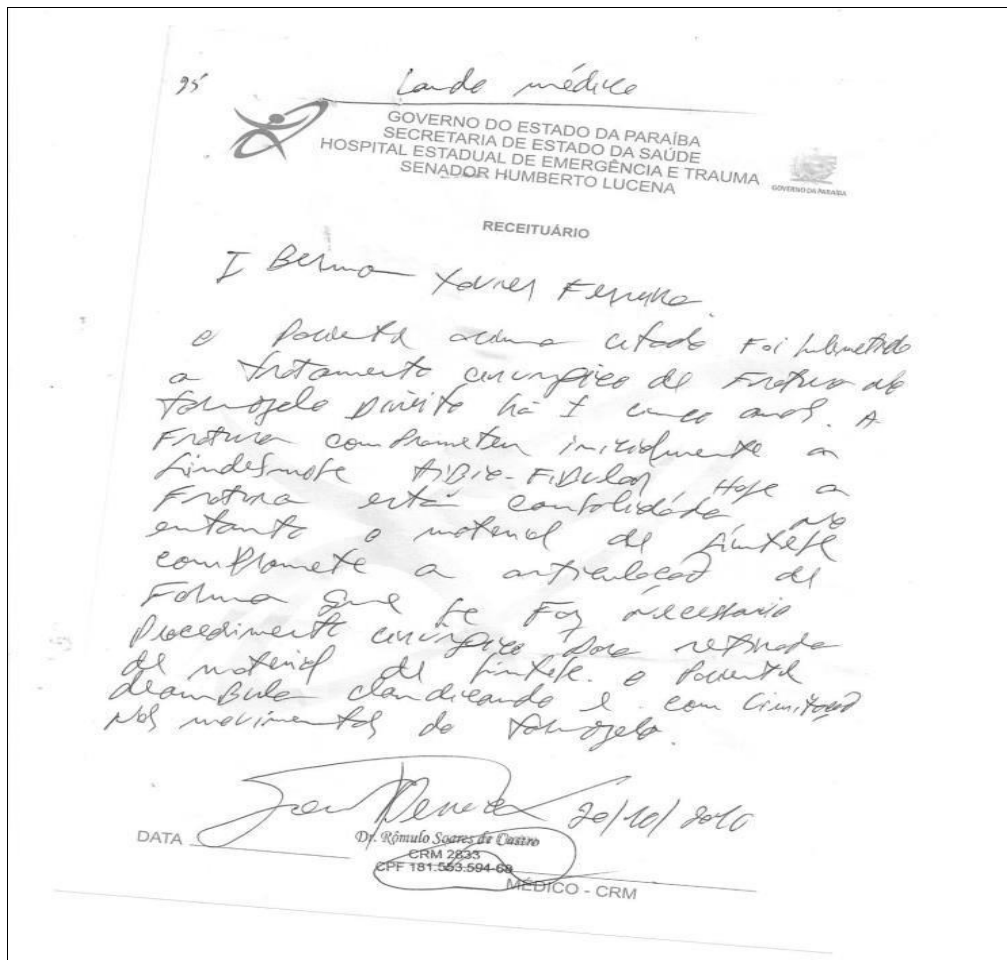 95
Laudo médico
GOVERNO DO ESTADO DA PARAÍBA
SECRETARIA DE ESTADO DA SAÚDE
HOSPITAL ESTADUAL DE EMERGÊNCIA E TRAUMA
SENADOR HUMBERTO LUCENA
GOVERNO DA PARAÍBA
RECEITUÁRIO
Xavier
o Paciente acima citado Foi submetido
a tratamento cirúrgico de Fratura do
tornozelo Direito há cinco anos. A
Fratura comprometeu inicialmente a
sindesmose tíbio-Fibular Hoje a
Fratura está consolidada no
entanto o material de síntese
compromete a articulação de
Forma que se Faz necessario
Procedimento cirúrgico para retirada
de material de síntese. o Paciente
deambula claudicando e com limitação
nos movimentos do tornozelo.
20/10/2010
DATA
Dr. Rômulo Soares de Castro
CRM 2833
CPF 181.553.594-68
MÉDICO - CRM